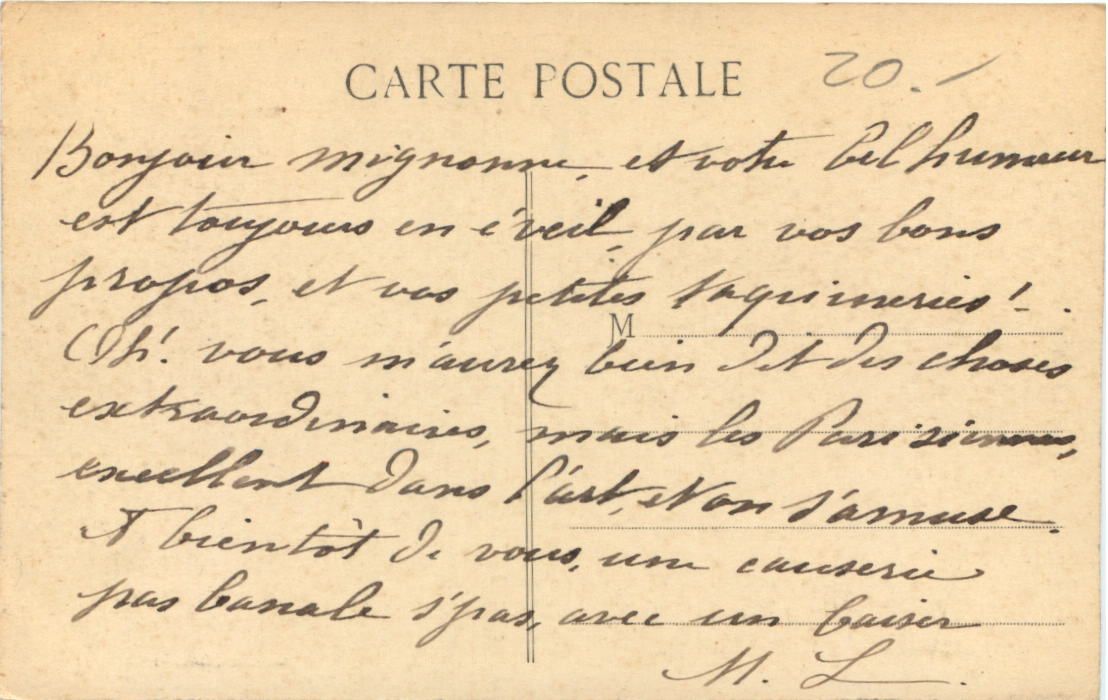 CARTE POSTALE 20.-
Bonjour mignonne, et votre bel humeur
est toujours en éveil, par vos bons
propos, et vos petites taquineries! -.
M
Oh! vous m'aurez bien dit des choses
extraordinaires, mais les Parisiennes,
excellent dans l'art, et on s'amuse.
A bientôt de vous, une causerie
pas banale s'pas, avec un baiser
M. L.